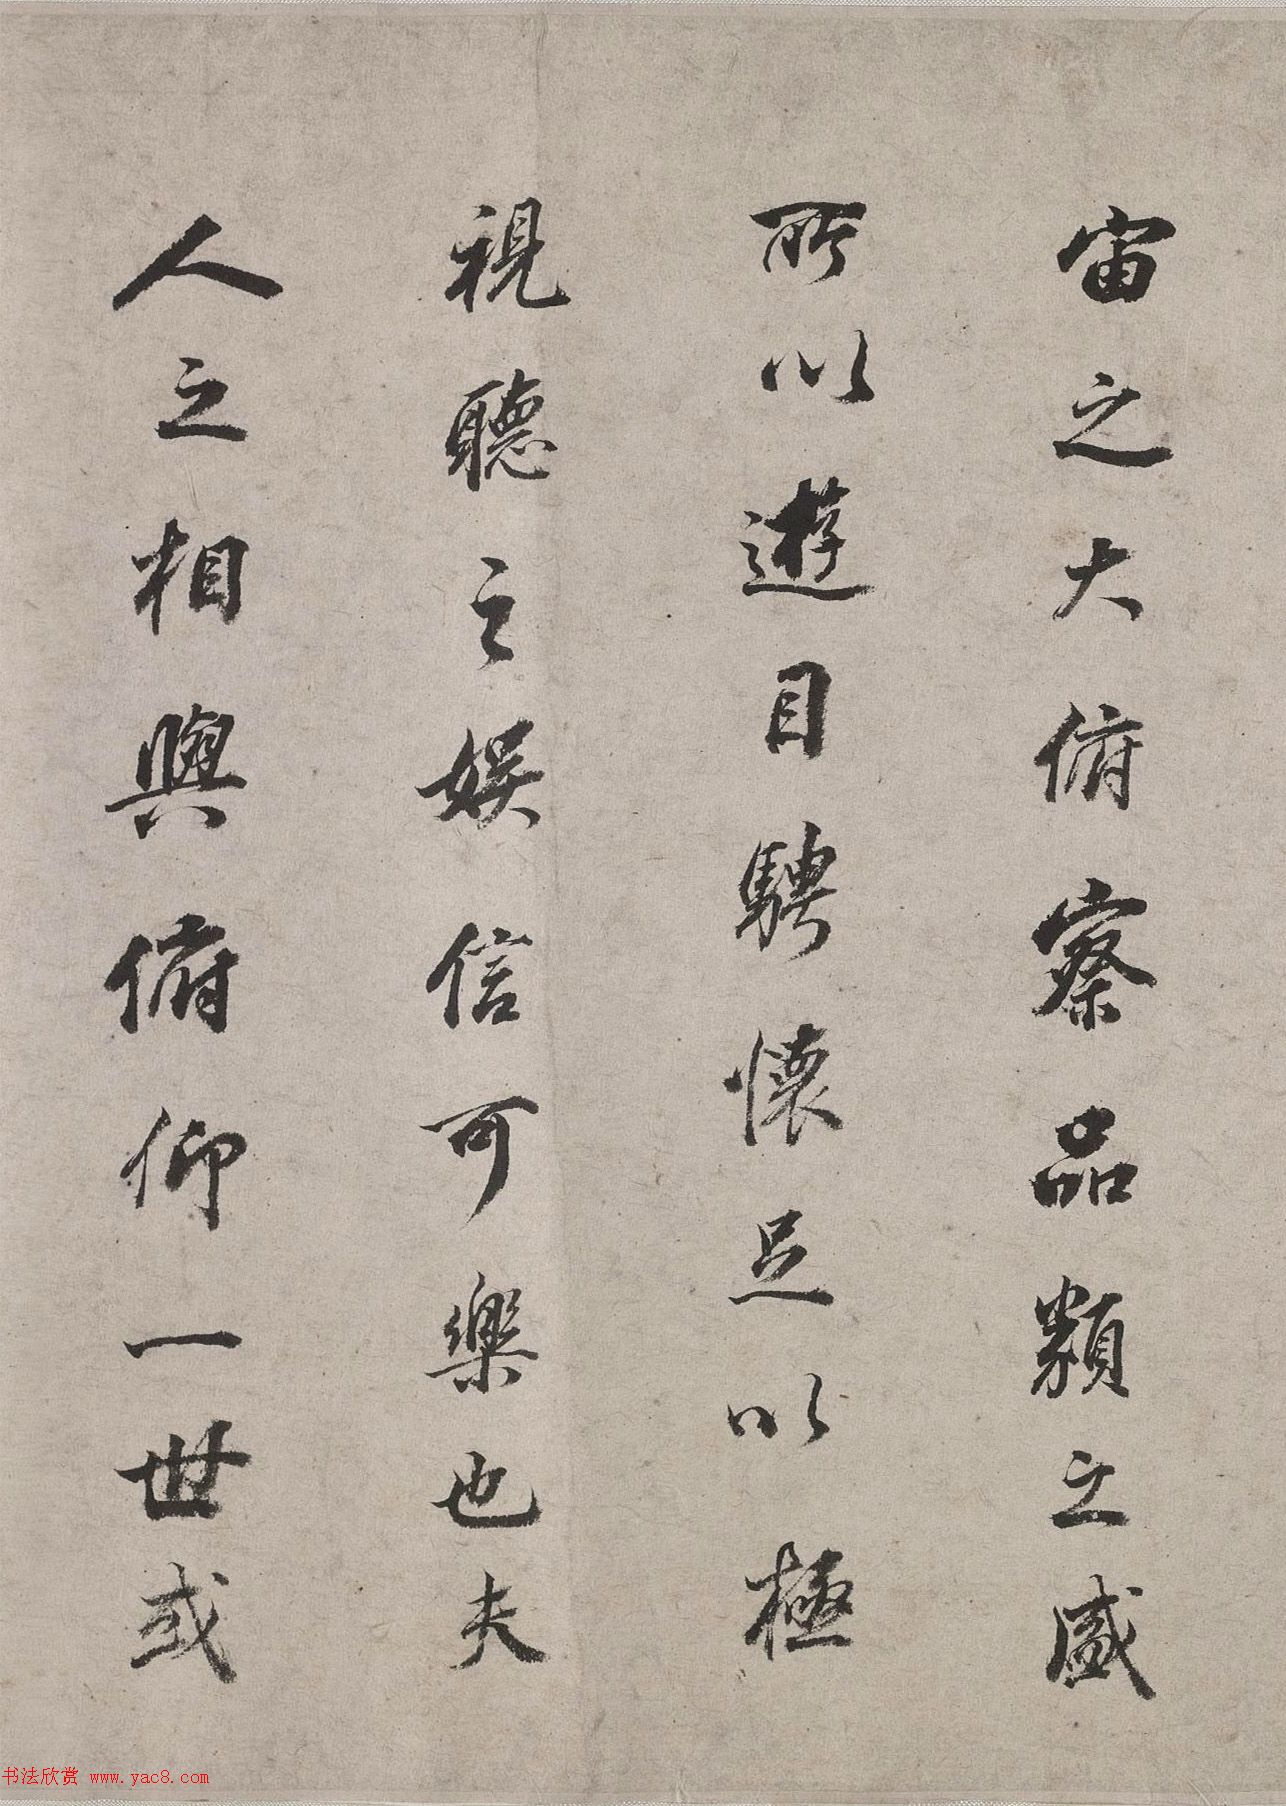 宙之大俯察品類之盛
所以遊目騁懷足以極
視聽之娛信可樂也夫
人之相與俯仰一世或
书法欣赏 www.yac8.com